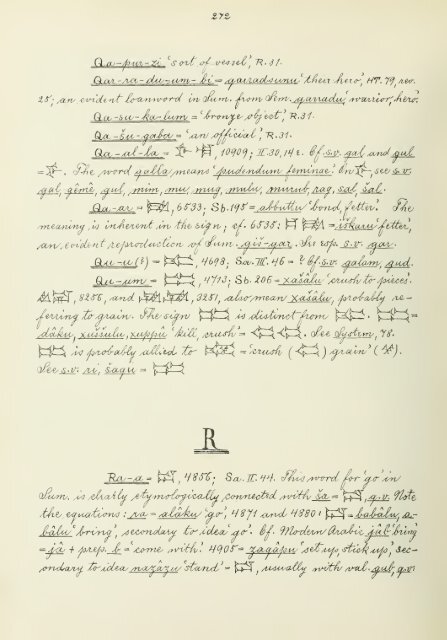 272
Qa-pur-zi 'sort of vessel', R.31.
Qar-ra-du-um-bi = qarradsunu 'their hero', HT. 79, rev.
25; an evident loanword in Sum. from Sem. qarradu, 'warrior, hero'.
Qa-su-ka-lum = 'bronze object', R.31.
Qa-šu-gaba = 'an official', R.31.
Qa-al-la = 10909; II. 30, 14 Cf. s.v. gal and gul
= The word qalla means 'pudendum feminae'. On see s.v.
gal, gêmê, gul, mim, mu, mug, mulu, murub, rag, sal, šal.
Qa-ar = 6533; Sb. 195 = abbuttu 'bond, fetter'. The
meaning is inherent in the sign; cf. 6535: = iškaru 'fetter',
an evident reproduction of Sum. giš-gar. See esp. s.v. gar.
Qu-u (?) = 4698; Sa. III. 46 = ? Cf. s.v. galam, gud.
Qu-um = 4713; Sb. 206 = xašâlu 'crush to pieces'.
8256, and 3251, also mean xašâlu, probably re-
ferring to grain. The sign is distinct from =
dâku, xuššulu, xuppû 'kill, crush' = See System, 78.
is probably allied to = 'crush ( ) grain' ( ).
See s.v. ri, šagu =
R
Ra-a = 4856; Sa. II. 44. This word for 'go' in
Sum. is clearly etymologically connected with ša = q.v. Note
the equations: ra = alâku 'go', 4871 and 4880: = babâlu, a-
bâlu 'bring', secondary to idea 'go'. Cf. Modern Arabic jâb 'bring'
= jâ + prep. b = 'come with'. 4905 = zaqâpu 'set up, stick up', sec-
ondary to idea nazâzu 'stand' = usually with val. gub, q.v.